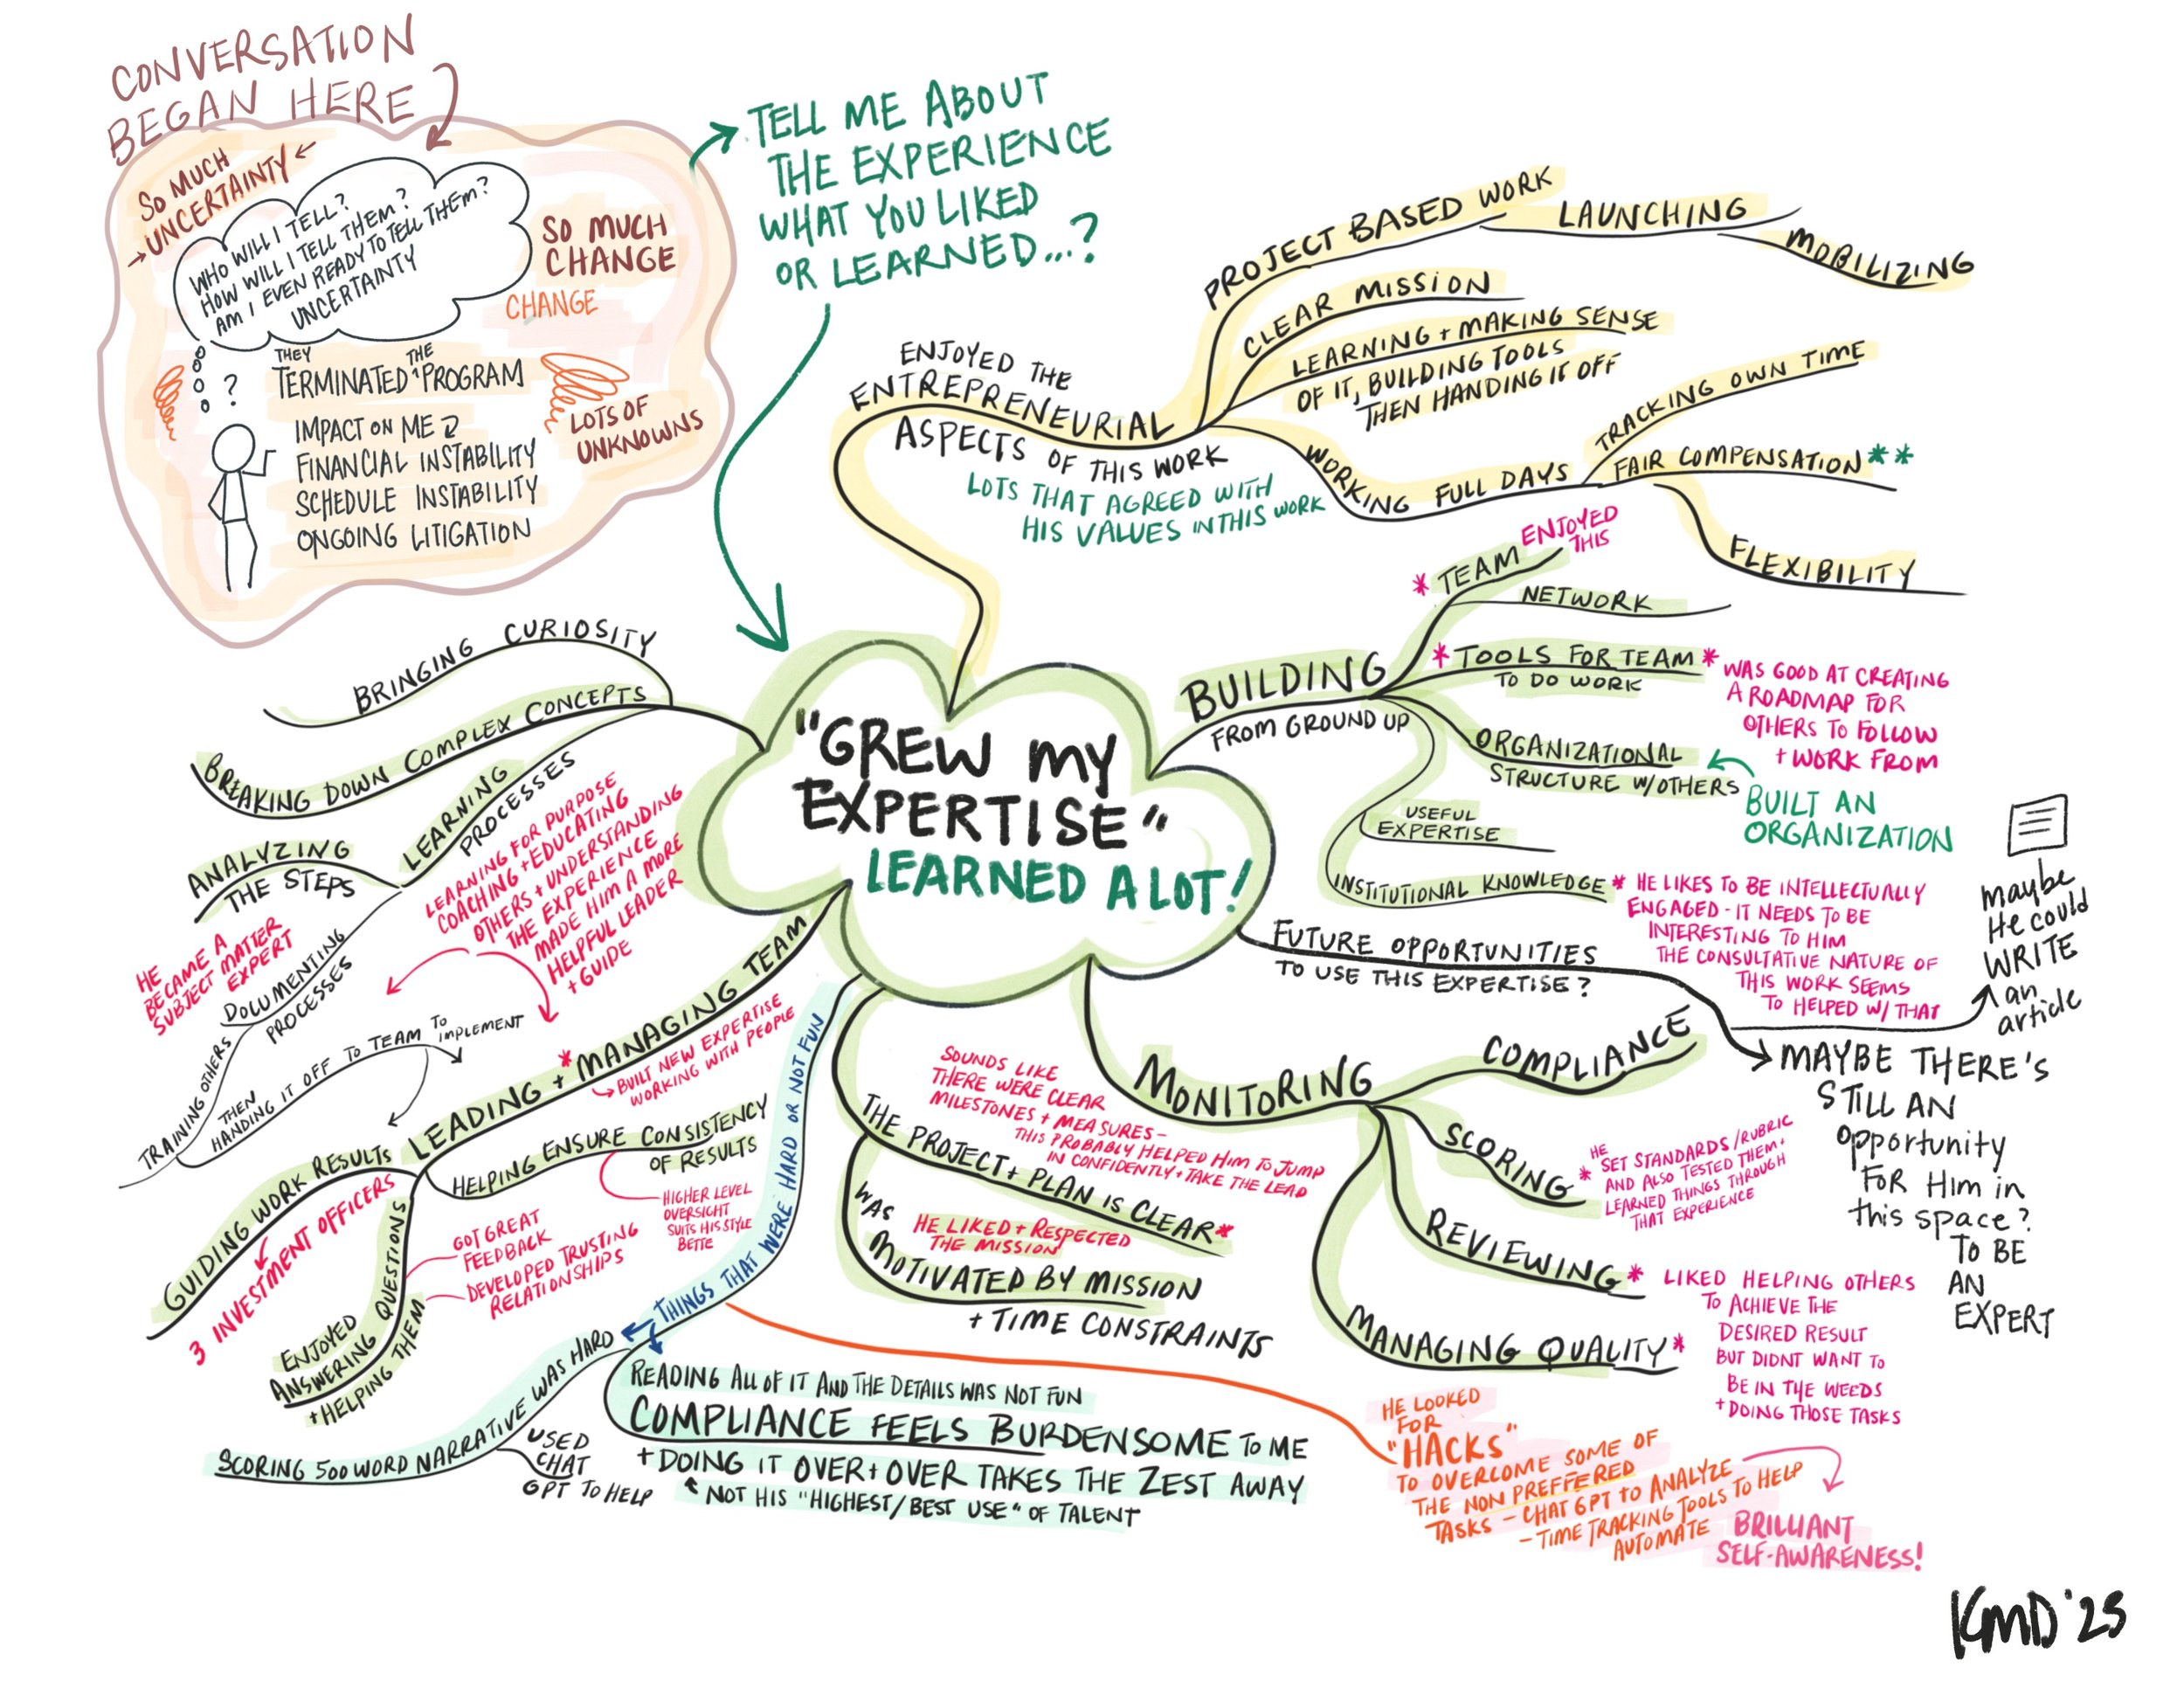 CONVERSATION
BEGAN HERE
SO MUCH
UNCERTAINTY
WHO WILL I TELL?
HOW WILL I TELL THEM?
AM I EVEN READY TO TELL THEM?
UNCERTAINTY
SO MUCH
CHANGE
CHANGE
?
THEY THE
TERMINATED ^ PROGRAM
LOTS OF
UNKNOWNS
IMPACT ON ME
FINANCIAL INSTABILITY
SCHEDULE INSTABILITY
ONGOING LITIGATION
TELL ME ABOUT
THE EXPERIENCE
WHAT YOU LIKED
OR LEARNED...?
"GREW MY
EXPERTISE"
LEARNED A LOT!
ENJOYED THE
ENTREPRENEURIAL
ASPECTS OF THIS WORK
LOTS THAT AGREED WITH
HIS VALUES IN THIS WORK
PROJECT BASED WORK
LAUNCHING
MOBILIZING
CLEAR MISSION
LEARNING + MAKING SENSE
OF IT, BUILDING TOOLS
THEN HANDING IT OFF
WORKING FULL DAYS
TRACKING OWN TIME
FAIR COMPENSATION **
FLEXIBILITY
BUILDING
FROM GROUND UP
* TEAM
ENJOYED
THIS
NETWORK
* TOOLS FOR TEAM *
TO DO WORK
WAS GOOD AT CREATING
A ROADMAP FOR
OTHERS TO FOLLOW
+ WORK FROM
ORGANIZATIONAL
STRUCTURE W/OTHERS
BUILT AN
ORGANIZATION
USEFUL
EXPERTISE
INSTITUTIONAL KNOWLEDGE
* HE LIKES TO BE INTELLECTUALLY
ENGAGED - IT NEEDS TO BE
INTERESTING TO HIM
THE CONSULTATIVE NATURE OF
THIS WORK SEEMS
TO HELPED W/ THAT
FUTURE OPPORTUNITIES
TO USE THIS EXPERTISE?
maybe
He could
WRITE
an
article
MAYBE THERE'S
STILL AN
Opportunity
FOR Him in
this space?
TO BE
AN
EXPERT
MONITORING
COMPLIANCE
SCORING
HE
* SET STANDARDS/RUBRIC
AND ALSO TESTED THEM+
LEARNED THINGS THROUGH
THAT EXPERIENCE
REVIEWING *
MANAGING QUALITY *
LIKED HELPING OTHERS
TO ACHIEVE THE
DESIRED RESULT
BUT DIDNT WANT TO
BE IN THE WEEDS
+ DOING THOSE TASKS
THE PROJECT + PLAN IS CLEAR *
SOUNDS LIKE
THERE WERE CLEAR
MILESTONES + MEASURES -
THIS PROBABLY HELPED HIM TO JUMP
IN CONFIDENTLY + TAKE THE LEAD
WAS
MOTIVATED BY MISSION
+ TIME CONSTRAINTS
HE LIKED + RESPECTED
THE MISSION
THINGS THAT WERE HARD OR NOT FUN
READING ALL OF IT AND THE DETAILS WAS NOT FUN
COMPLIANCE FEELS BURDENSOME TO ME
+ DOING IT OVER + OVER TAKES THE ZEST AWAY
NOT HIS "HIGHEST/BEST USE" OF TALENT
SCORING 500 WORD NARRATIVE WAS HARD
USED
CHAT
GPT TO HELP
HE LOOKED
FOR
"HACKS"
TO OVERCOME SOME OF
THE NON PREFFERED
TASKS - CHAT GPT TO ANALYZE
- TIME TRACKING TOOLS TO HELP
AUTOMATE
BRILLIANT
SELF-AWARENESS!
LEADING + * MANAGING TEAM
BUILT NEW EXPERTISE
WORKING WITH PEOPLE
HELPING ENSURE CONSISTENCY
OF RESULTS
HIGHER LEVEL
OVERSIGHT
SUITS HIS STYLE
BETTE
GUIDING WORK RESULTS
3 INVESTMENT OFFICERS
ENJOYED
ANSWERING QUESTIONS
+ HELPING THEM
GOT GREAT
FEEDBACK
DEVELOPED TRUSTING
RELATIONSHIPS
BRINGING CURIOSITY
BREAKING DOWN COMPLEX CONCEPTS
LEARNING
PROCESSES
LEARNING FOR PURPOSE
COACHING + EDUCATING
OTHERS + UNDERSTANDING
THE EXPERIENCE
MADE HIM A MORE
HELPFUL LEADER
+ GUIDE
ANALYZING
THE STEPS
HE
BECAME A
SUBJECT MATTER
EXPERT
DOCUMENTING
PROCESSES
TRAINING OTHERS
THEN
HANDING IT OFF TO TEAM TO
IMPLEMENT
KMD '25